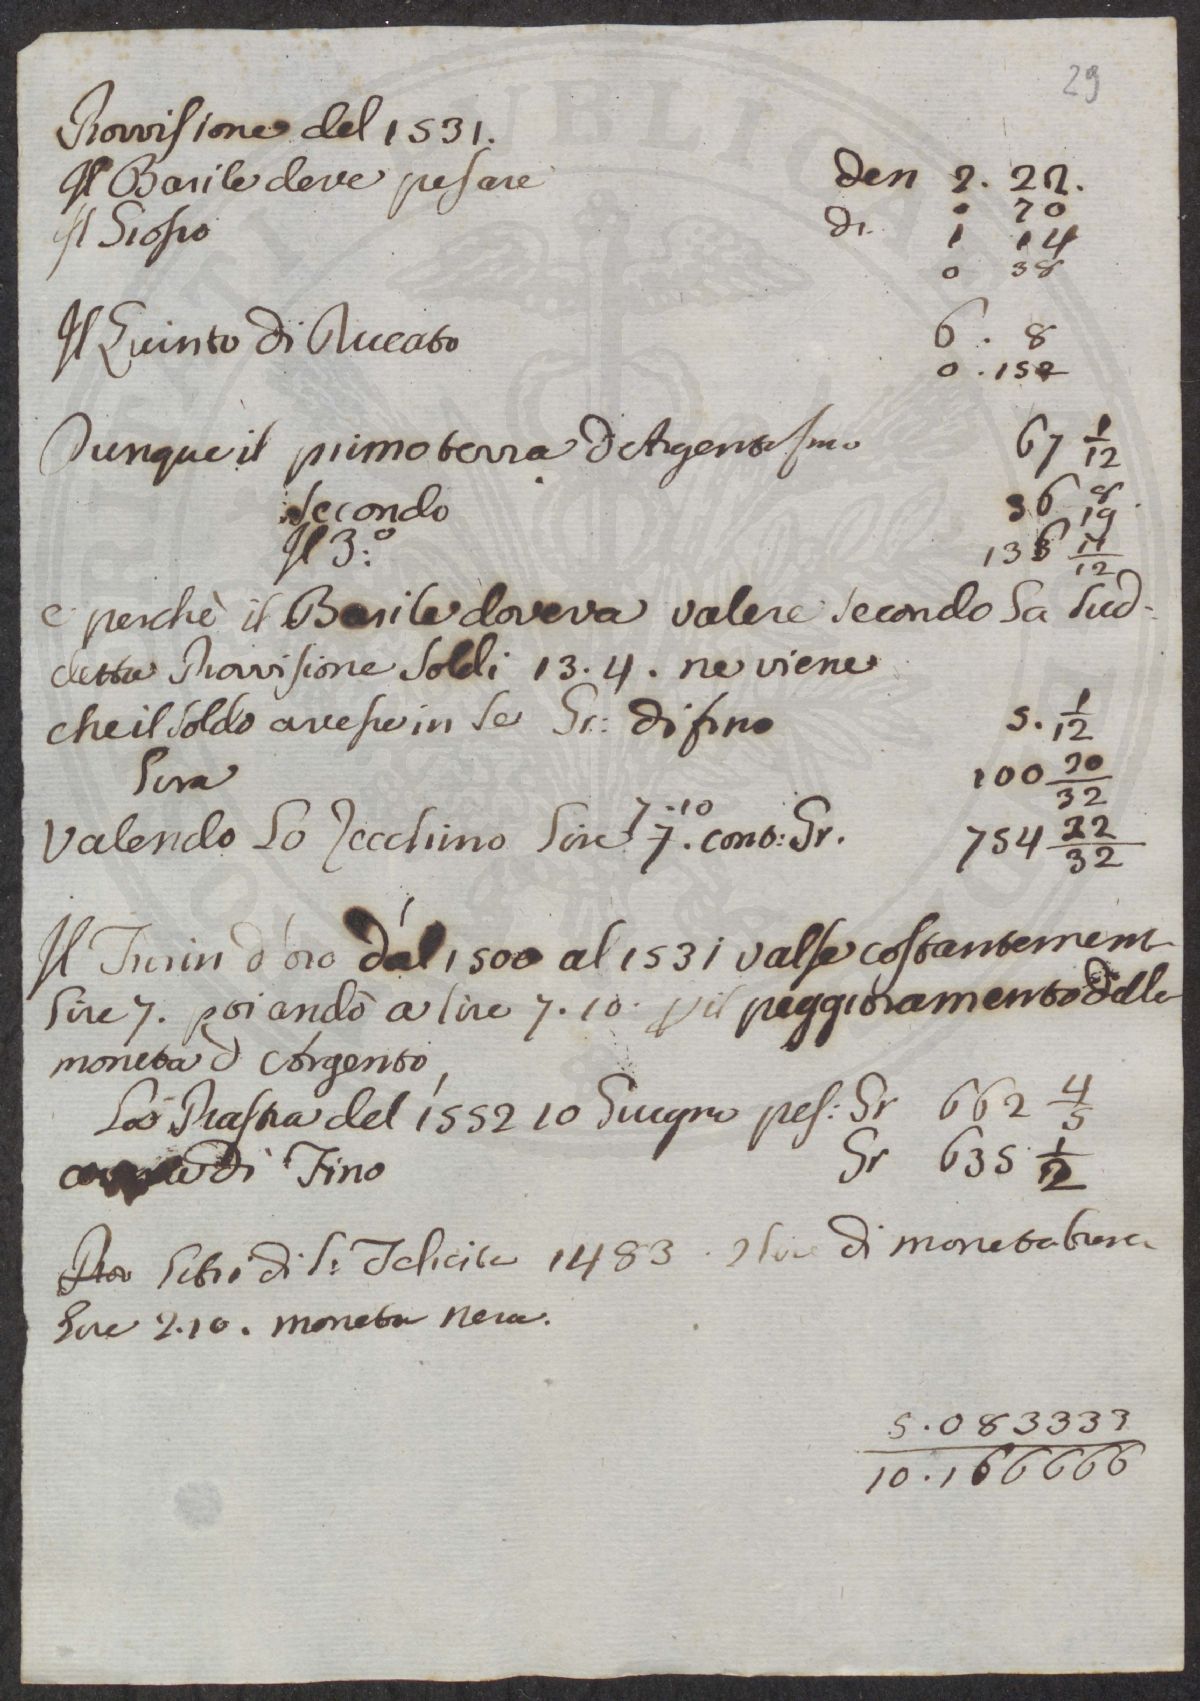 29
Provvisione del 1531.
Il Barile deve pesare den 2. 22.
0 70
Il Grosso di. 1 14
0 38
Il Quinto di Ducato 6. 8
0. 152
Dunque il primo terrà d'Argento fino 67 1/12
Secondo 36 8/19
Il 3.o 136 11/12
e perchè il Barile doveva valere secondo la Sud-
detta Provvisione Soldi 13.4. ne viene
che il Soldo avesse in se Gr: di fino 5. 1/12
Lira 100 20/32
7.10
Valendo Lo Zecchino Lire 7. cont: Gr. 754 22/32
Il Fiorin d'oro dal 1500 al 1531 valse costantement
Lire 7. poi andò a lire 7.10. p il peggioramento delle
moneta d'Argento,
La Piastra del 1552 10 Giugno pes: Gr 662 4/5
di Fino Gr 635 1/2
Pro Libri di S: Felicita 1483. 2 lire di moneta
Lire 2.10. moneta nera.
5.083333
10.166666